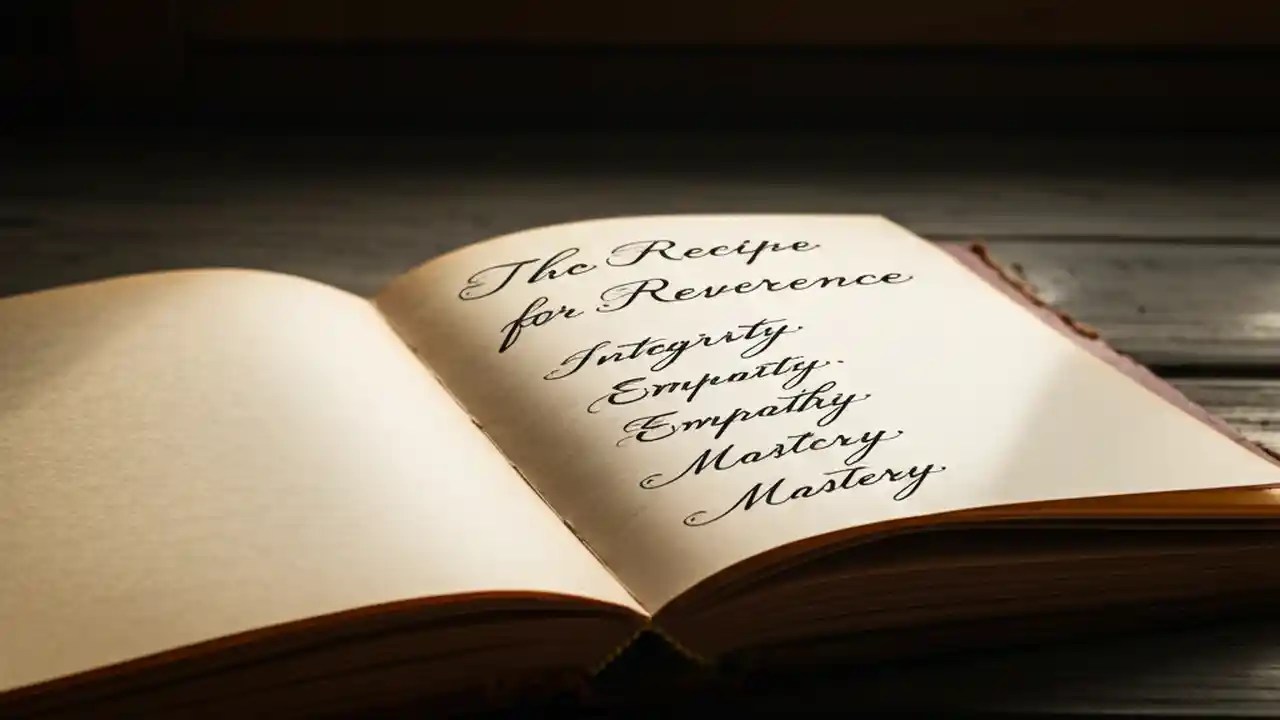 The Recipe
for Reverence
Integrity.
Empasty.
Empathy
Mastery.
Mastery.